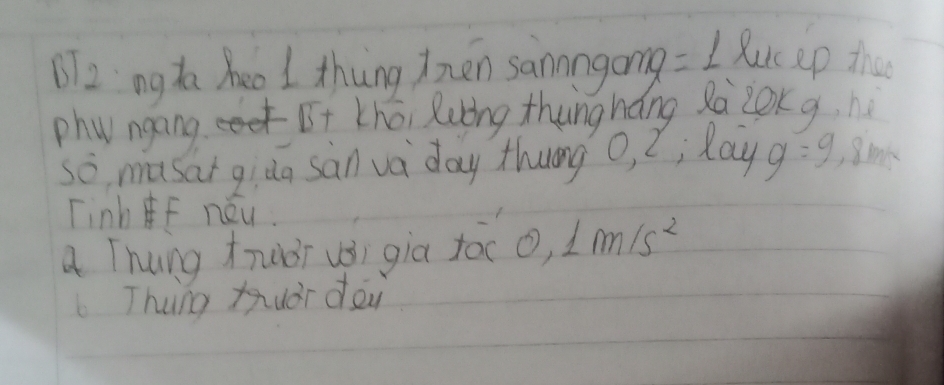 BT2: ng ta kéo 1 thùng trên sànnngang = 1 lực ép theo
phw ngang. Bt khối lượng thùng hàng là 20kg, hệ
số, ma sát giữa sàn và đáy thùng 0,2; lấy g = 9,8m/
Tính F nếu.
a Thùng trượt với gia tốc 0,1 m/s²
b Thùng trượt đều